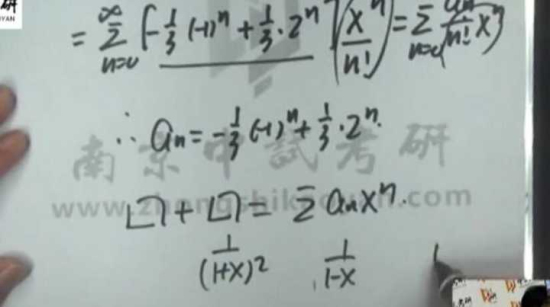 研
= ∞Σn=0 [-1/3 (-1)^n + 1/3 · 2^n] (x^n/n!) = Σn=0 an/n! x^n
∴ an = -1/3 (-1)^n + 1/3 · 2^n.
南京中试考研
www.zhongshikaoyan.com
□ + □ = Σ an x^n.
1/(1+x)^2 1/1-x